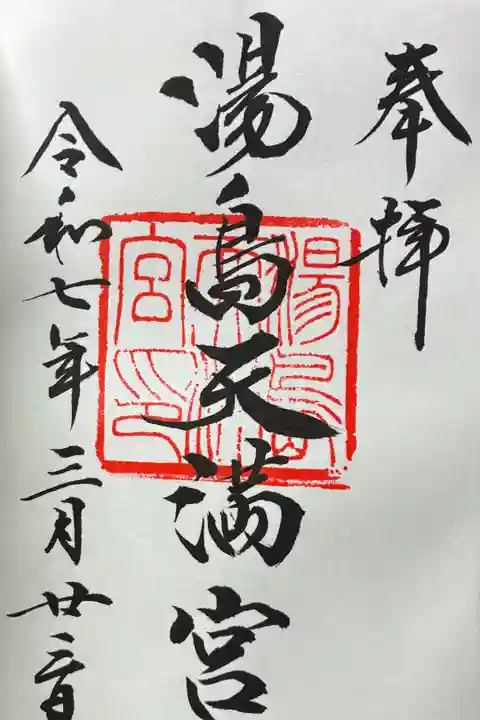 奉拝
湯島天満宮
湯島天満宮印
令和七年三月廿三日